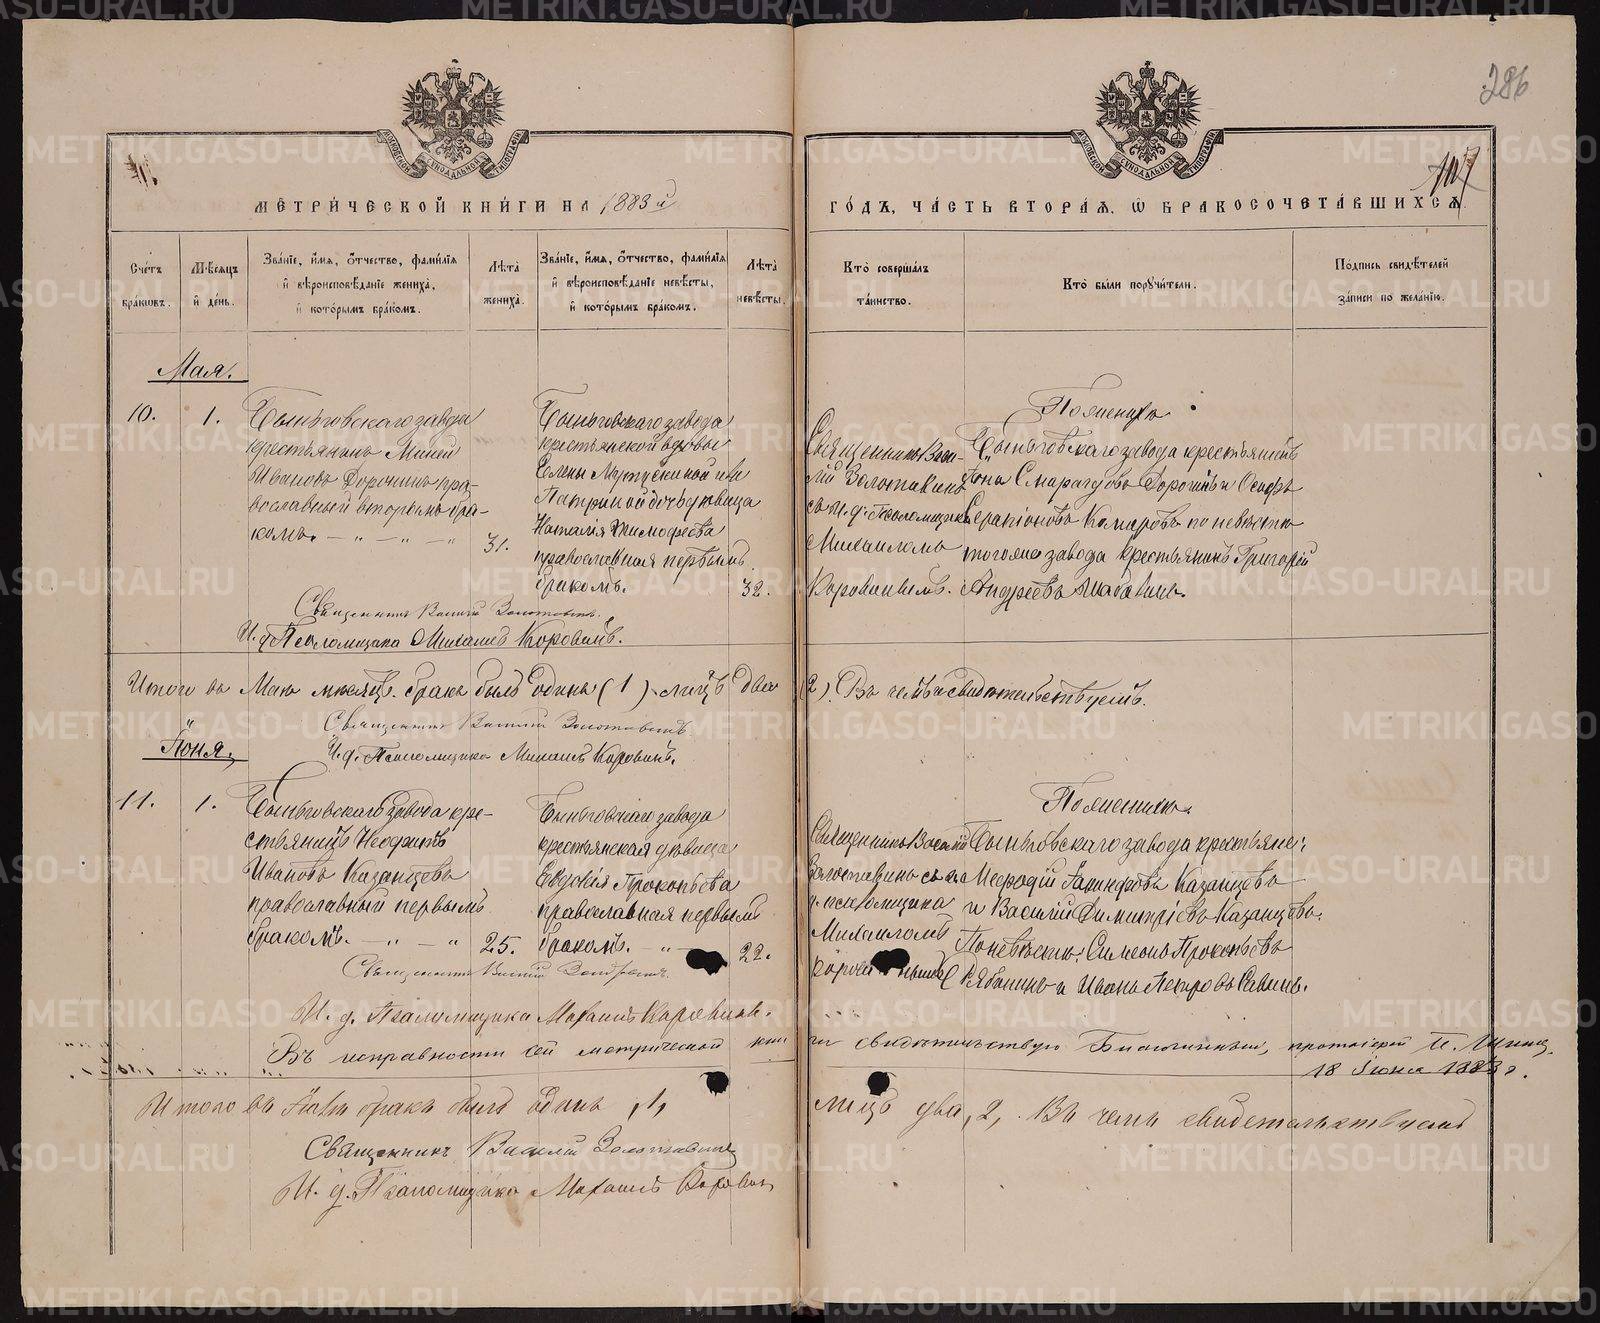 286
МЕТРИЧЕСКОЙ КНИГИ НА 1883 й
ГОДЪ, ЧАСТЬ ВТОРАЯ, Ѡ БРАКОСОЧЕТАВШИХСЯ
Счетъ браковъ.
Мѣсяцъ и день.
Званіе, имя, отчество, фамилія и вѣроисповѣданіе жениха, и которымъ бракомъ.
Лѣта жениха.
Званіе, имя, отчество, фамилія и вѣроисповѣданіе невѣсты, и которымъ бракомъ.
Лѣта невѣсты.
Кто совершалъ таинство.
Кто были поручители.
Подпись свидѣтелей записи по желанію.
Мая.
10.
1.
Быньговскаго завода
крестьянинъ
Ивановъ Доронинъ пра-
вославный вторымъ бра-
комъ. — „ — „ — „
31.
Быньговскаго завода
крестьянской вдовы
Елены
дѣвица
Наталія Тимофеева
православная первымъ
бракомъ.
32.
Священникъ Васи-
лій Золотавинъ
съ и. д. Псаломщика
Михаиломъ
Коровинымъ.
По женихѣ
Быньговскаго завода крестьяне
Смарагдовъ Доронинъ и Осифъ
Серапіоновъ Комаровъ по невѣстѣ
тогоже завода крестьянинъ Григорій
Андреевъ Шабалинъ.
Священникъ Василій Золотавинъ.
И. д. Псаломщика Михаилъ Коровинъ.
Итого въ Маѣ мѣсяцѣ бракъ былъ одинъ (1) лицъ два
2). Въ чемъ и свидѣтельствуемъ.
Священникъ Василій Золотавинъ
И. д. Псаломщика Михаилъ Коровинъ.
Іюня.
11.
1.
Быньговскаго завода кре-
стьянинъ Неофитъ
Ивановъ Казанцевъ
православный первымъ
бракомъ. — „ — „
25.
Быньговскаго завода
крестьянская дѣвица
Евдокія Прокопьева
православная первымъ
бракомъ. — „ —
22.
Священникъ Василій
Золотавинъ съ и.
д. псаломщика
Михаиломъ
По женихѣ.
Быньговскаго завода крестьяне:
Мефодій Іакинфовъ Казанцевъ
и Василій Димитріевъ Казанцевъ.
По невѣстѣ: Симеонъ Прокопьевъ
Рябининъ и Иванъ Петровъ Савинъ.
Священникъ Василій Золотавинъ.
И. д. Псаломщика Михаилъ Коровинъ.
Въ исправности сей метрической кни
ги свидѣтельствую Благочинный, протоіерей П.
18 Іюня 1883 г.
Итого въ Іюнѣ бракъ былъ одинъ „1„
лицъ два „2„. Въ чемъ свидѣтельствуемъ
Священникъ Василій Золотавинъ
И. д. Псаломщика Михаилъ Коровинъ
METRIKI.GASO-URAL.RU